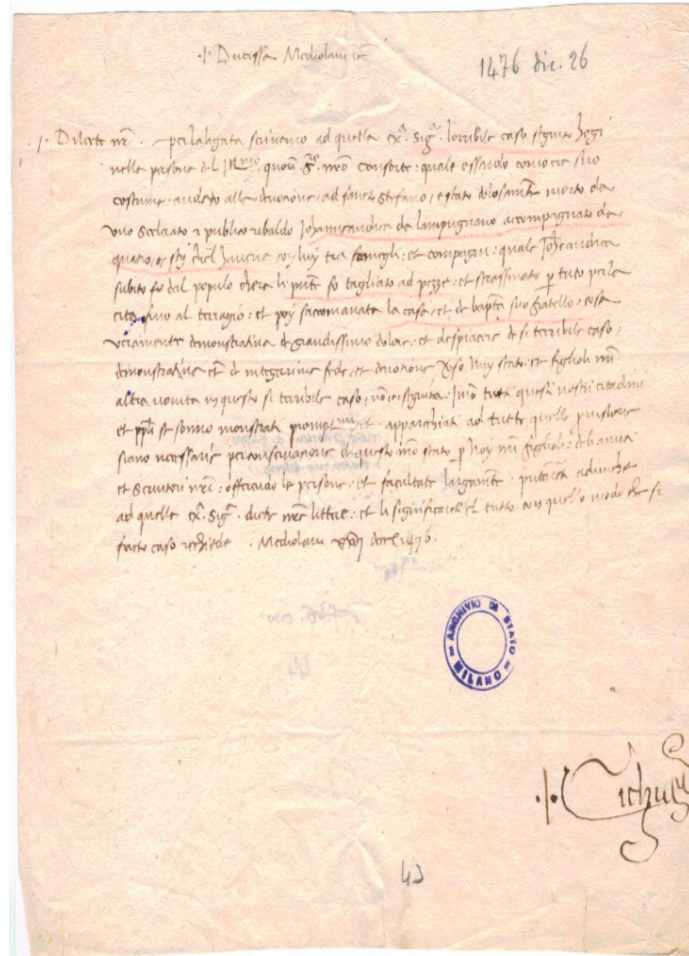 ·/· Ducissa Mediolani etc
1476 dic. 26
·/· Dilecte nr̄e . per la ligata scrivemo ad quella Exᵃ. Sigᵃ. lorribile caso seguito hogi
nella persona del Illᵐᵒ quon. Sʳᵉ nr̄o consorte: quale essendo como era suo
costume: andato alla devotione, ad sancto Stefano, e stato dolosamente morto da
uno scelerato et publico ribaldo Johanneandrea da lampugnano accompagnato da
quatro, o sey che haveva cum luy tra famegli: et compagni: quale Johanneandrea
subito fo dal populo che era li pnte fo tagliato ad pezze: et strassinato per tuto per la
cita fino al terragio: et poy sacomanata la casa, et de bapta suo fratello: cosa
veramente demonstrativa de grandissimo dolore: et despiacere de si terribile caso,
demonstrativa etiam de integerrima fede, et devotione verso Nuy stato et figlioli nri
altra novita in questo si terribile caso, non e seguita. Imo tutti questi nostri citadini
et ppli se sonno monstrati promptmi et apparechiati ad tutte quelle provisione
siano necessarie per conservatione de questo nro stato
et servitori nri: offerendo le persone: et facultate largamente . adunche
ad quella Exᵃ. Sigᵃ. dicte nr̄e littere: et li significarete el tutto cum quello modo che si
facto caso rechiede . Mediolani xxvj decel 1476.
ARCHIVIO DI STATO
MILANO
·/· Cichus
43